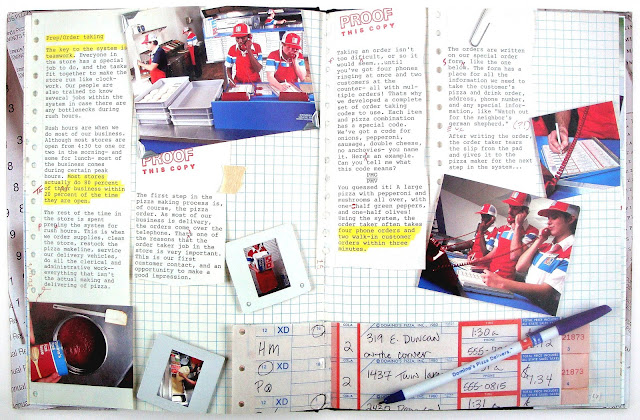 Prep/Order taking
The key to the system is
teamwork. Everyone in
the store has a special
job to do, and the tasks
fit together to make the
store run like clock-
work. Our people are
also trained to know
several jobs within the
system in case there are
any bottlenecks during
rush hours.
Rush hours are when we
do most of our business.
Although most stores are
open from 4:30 to one or
two in the morning- and
some for lunch- most of
the business comes
during certain peak
hours. Most stores
do 80 percent
of their business within
20 percent of the time
they are open.
The rest of the time in
the store is spent
preping the system for
rush hours. This is when
we order supplies, clean
the store, restock the
pizza makeline, service
our delivery vehicles,
do all the clerical and
administrative work--
everything that isn't
the actual making and
delivering of pizza.
PROOF
THIS COPY
The first step in the
pizza making process is,
of course, the pizza
order. As most of our
business is delivery,
the orders come over the
telephone. That's
the reasons that the
order taker job in the
store is very important.
This is our first
customer contact, and an
opportunity to make a
good impression.
PROOF
THIS COPY
Taking an order isn't
too difficult, or so it
would seem...until
you've got four phones
ringing at once and two
customers at the
counter- all with mul-
tiple orders! Thats why
we developed a complete
set of order taking
codes to use. Each item
and pizza combination
has a special code.
We've got a code for
onions, pepperoni,
sausage, double cheese,
anchovies- you name
it. Here's an example.
Can you tell me what
this code means?
You guessed it! A large
pizza with pepperoni and
mushrooms all over, with
one-half green peppers,
and one-half olives!
Using the system, the
order taker often takes
four phone orders and
two walk-in customer
orders within three
minutes.
The orders are written
on our special order
form, like the one
below. The form has a
place for all the
information we need to
take the customer's
pizza and drink order,
address, phone number,
and any special infor-
mation, like "Watch out
for the neighbor's
german shepherd."
After writing the order,
the order taker tears
the slip from the pad
and gives it to the
pizza maker for the next
step in the system...
12 XD
HM
12 XD
PQ
12 XD
COLA
2
319 E. Duncan
on the corner
1:30a
21873
COLA
2
1437 Twin
555-0815
$9.34
21873
COLA
1:31a
Domino's Pizza Delivers.